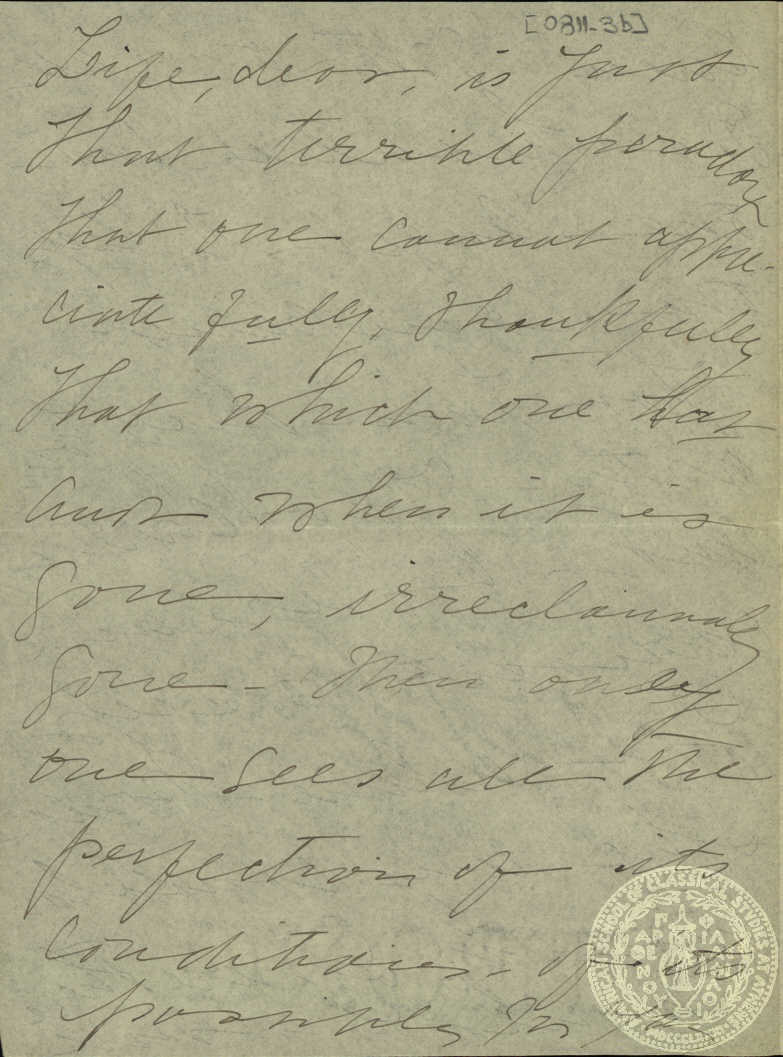 [0811-3b]
Life, dear, is just
that terrible paradox
that one cannot appre-
ciate fully, thankfully
that which one has
and when it is
gone, irreclaimably
gone - then only
one sees all the
perfection of its
conditions - of its
possibly
AMERICAN SCHOOL OF CLASSICAL STUDIES AT ATHENS